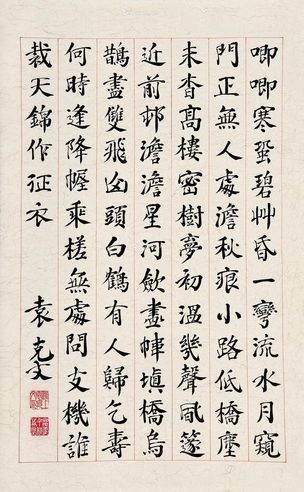 唧唧寒蛩碧艸昏一彎流水月窺
門正無人處澹秋痕小路低橋塵
未杳高樓密樹夢初溫幾聲風篴
近前邨澹澹星河歛畫填橋烏
鵲盡雙飛頭白鶴有人歸乞壽
何時逢降幄乘槎無處問支機誰
裁天錦作征衣
袁克文